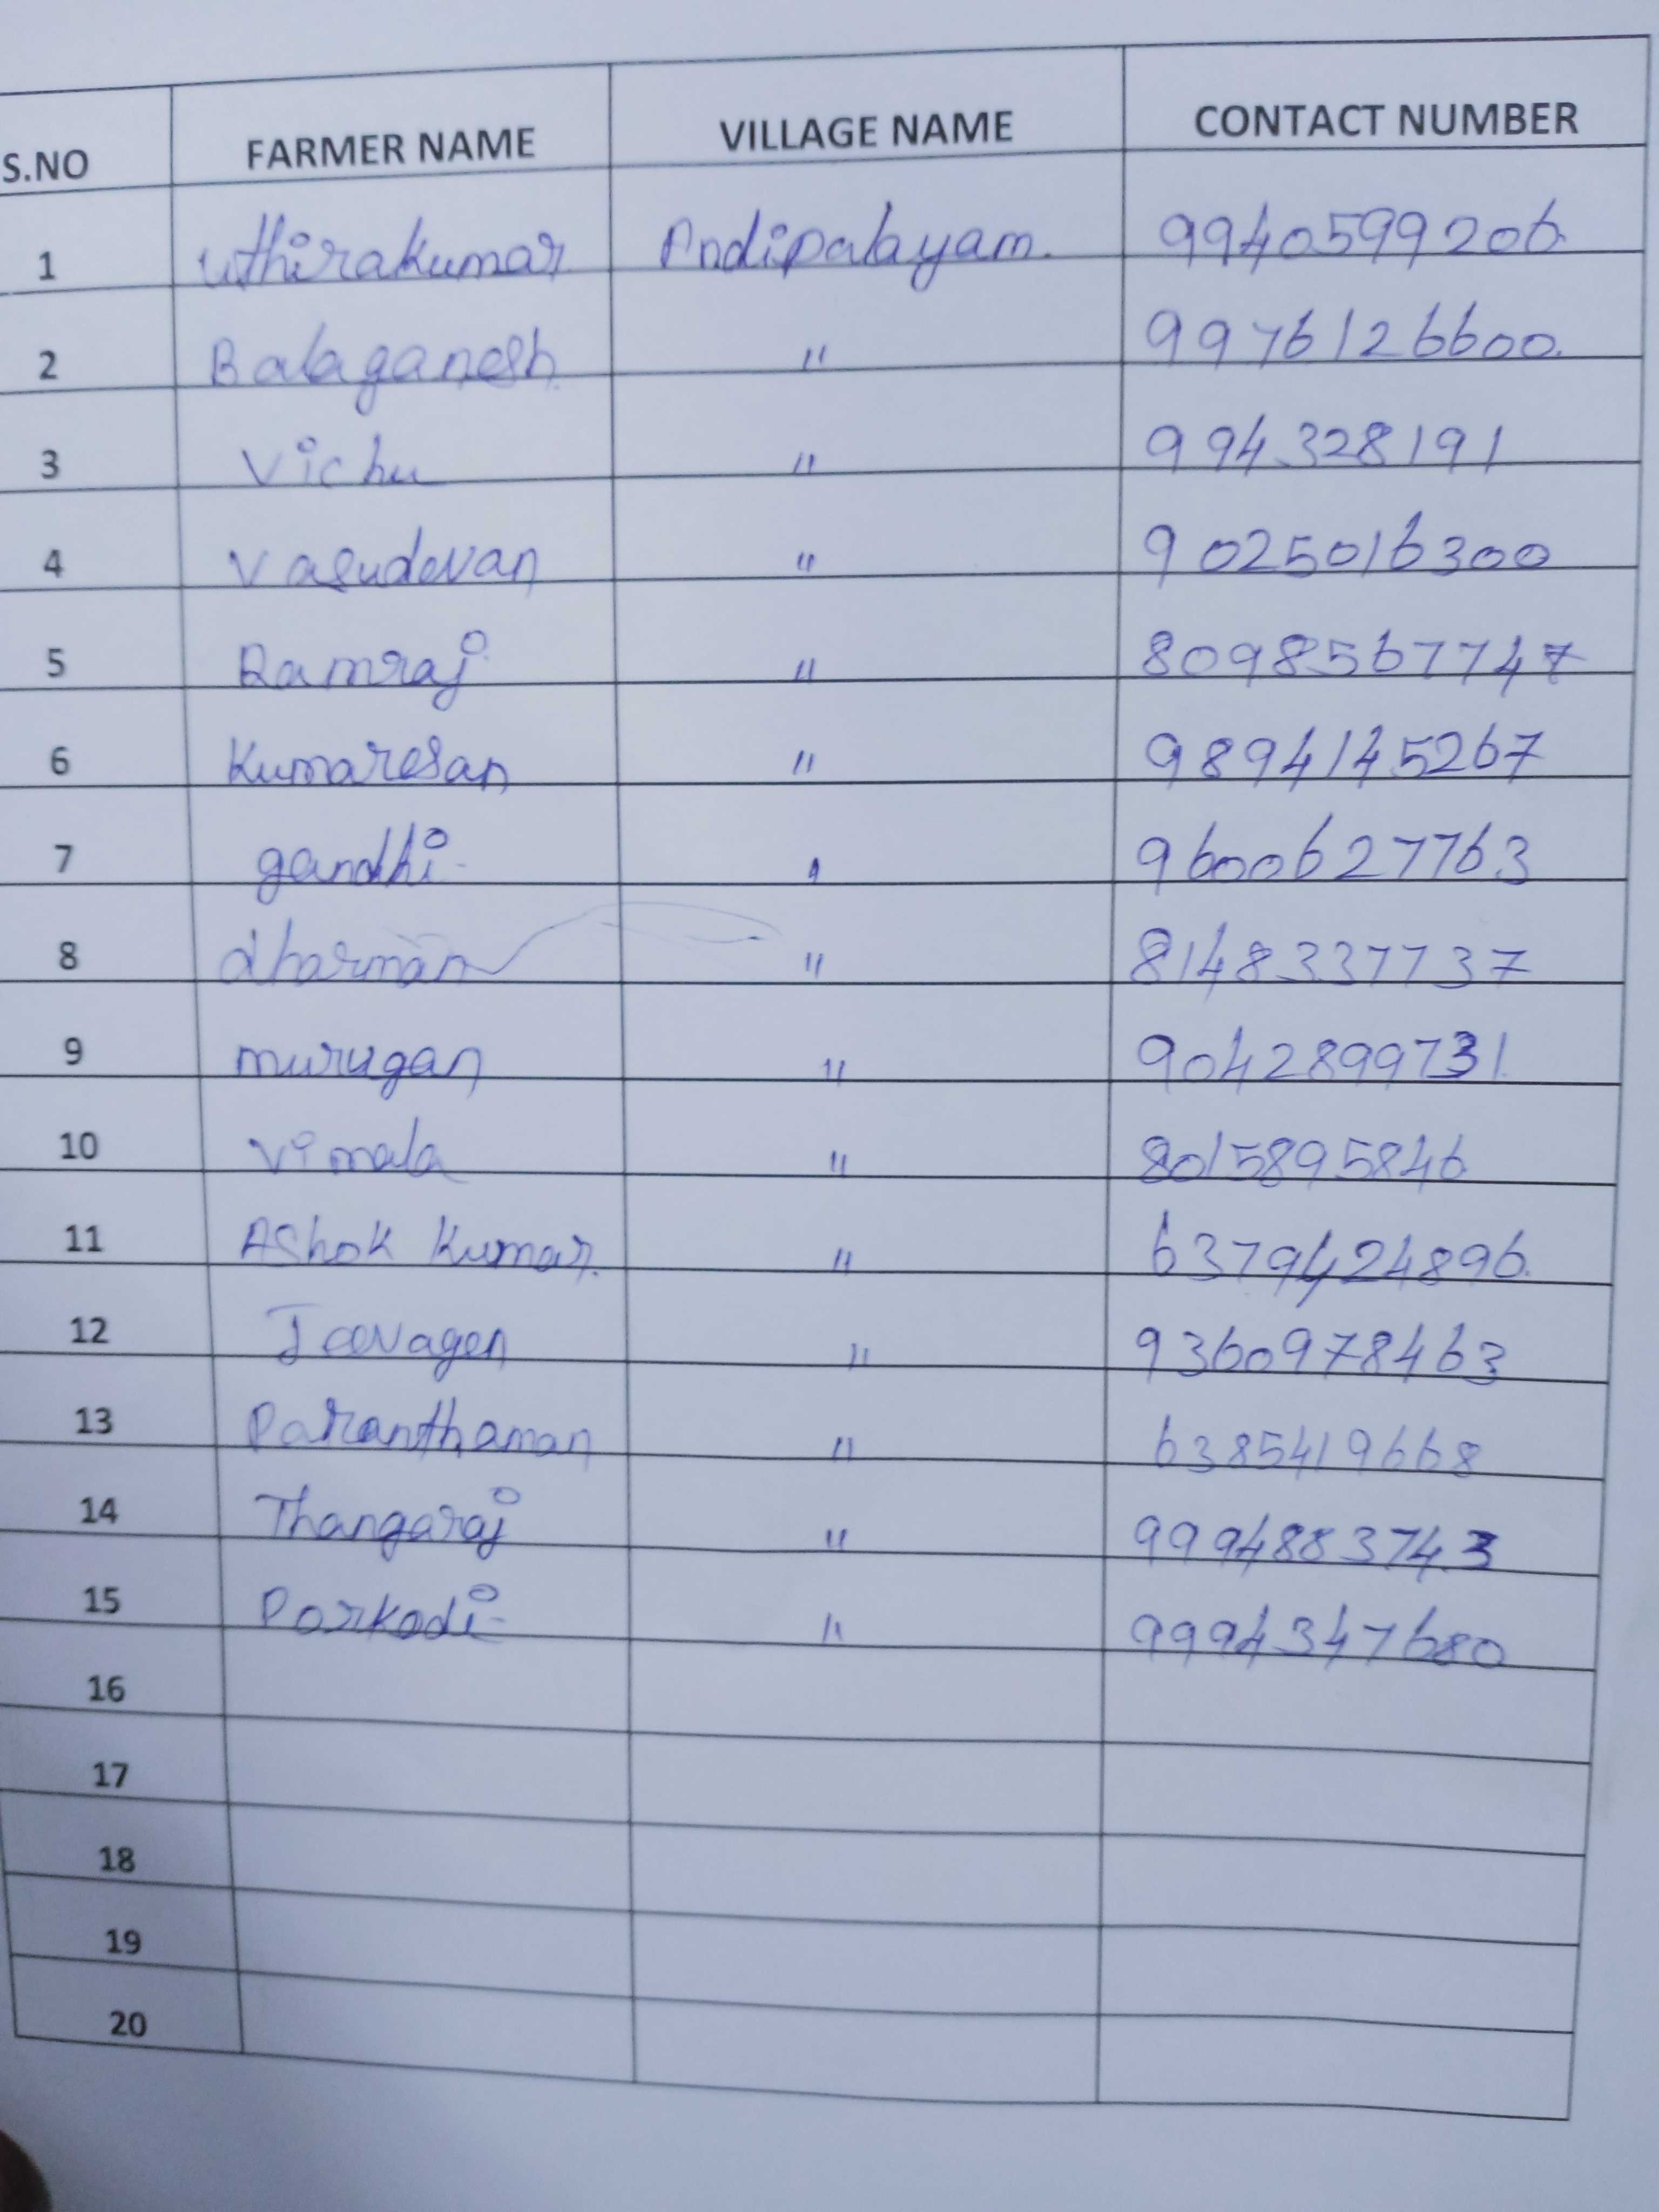 S.NO FARMER NAME VILLAGE NAME CONTACT NUMBER
1 Uthirakumar Andipalayam. 9940599206
2 Balaganesh " 9976126600
3 Vichu " 994328191
4 Vasudevan " 9025016300
5 Ramraj " 8098567747
6 Kumaresan " 9894145267
7 gandhi " 9600627763
8 dharman " 8148337737
9 murugan " 9042899731
10 Vimala " 8015895846
11 Ashok Kumar. " 6379424896
12 Jeevagen " 9360978463
13 Paranthaman " 6385419668
14 Thangaraj " 9994883743
15 Porkodi " 9994347680
16
17
18
19
20